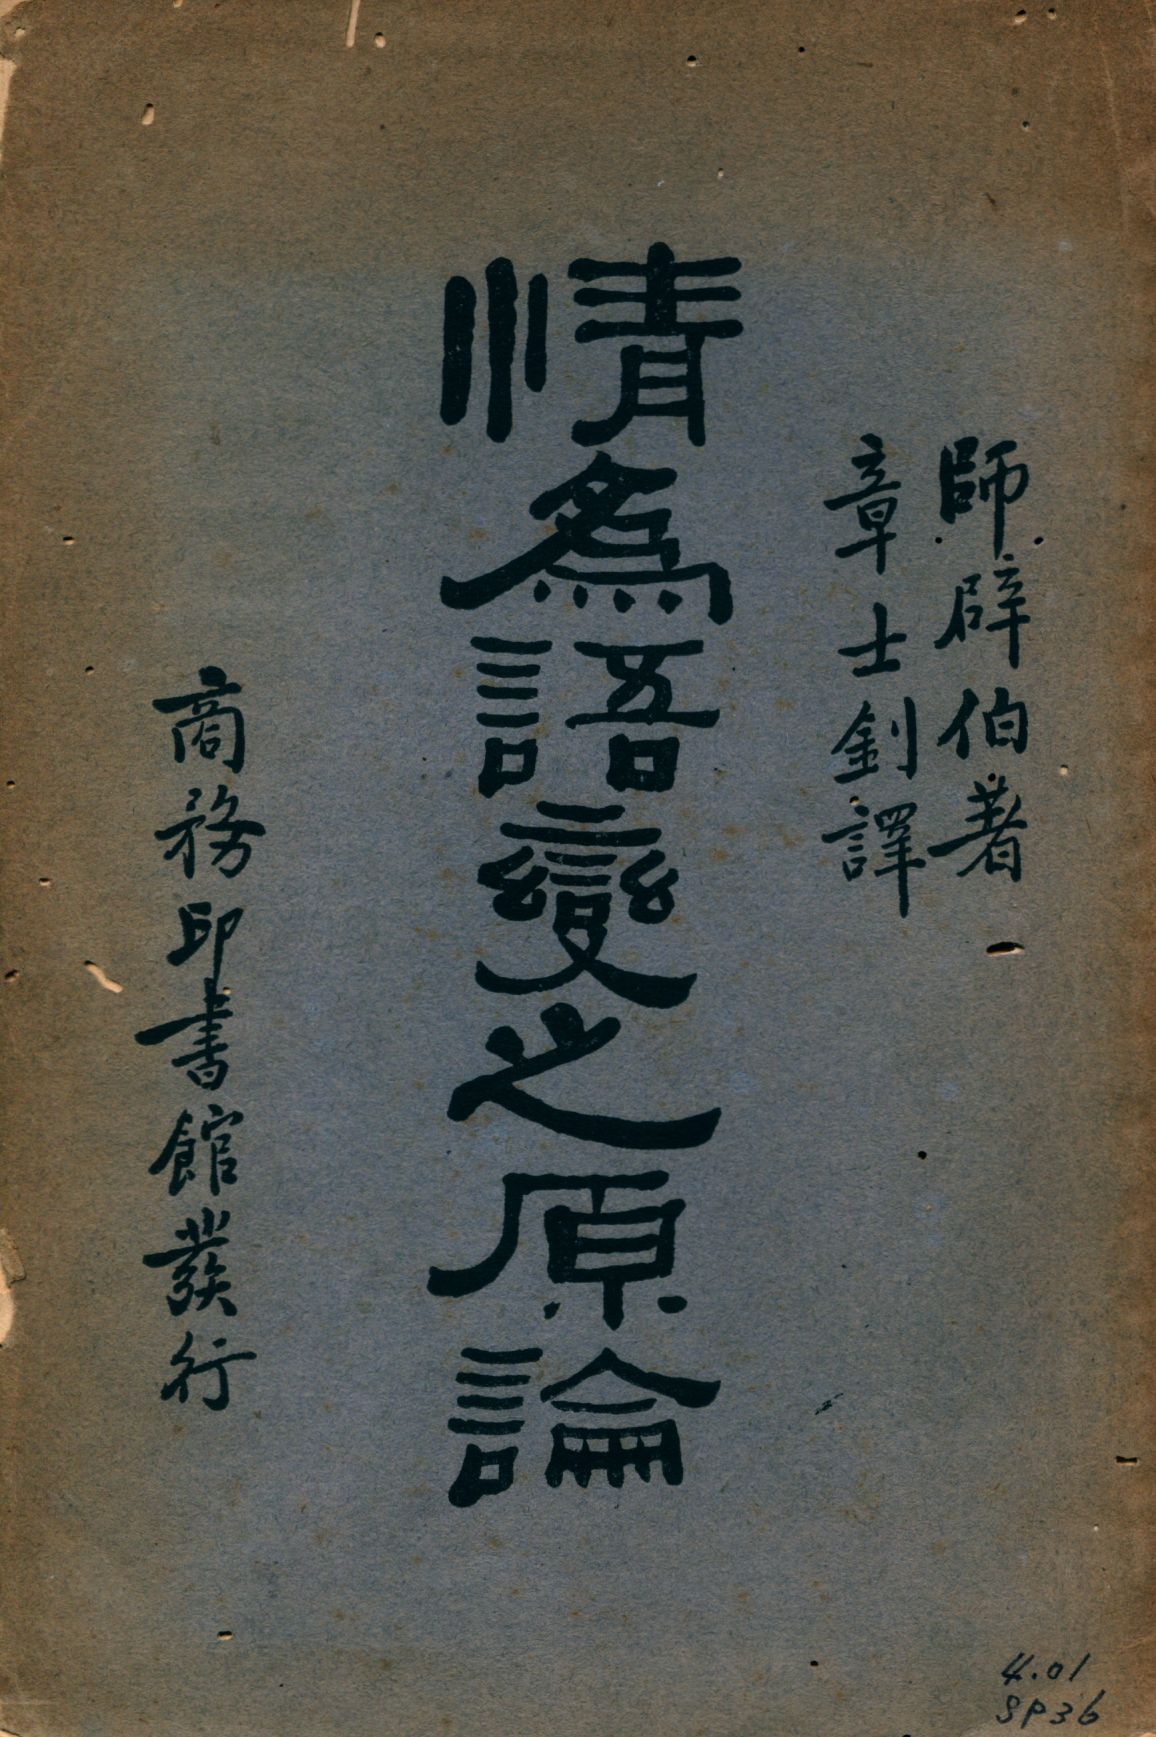 師辟伯著
章士釗譯
情爲語變之原論
商務印書館發行
4.01
SP36